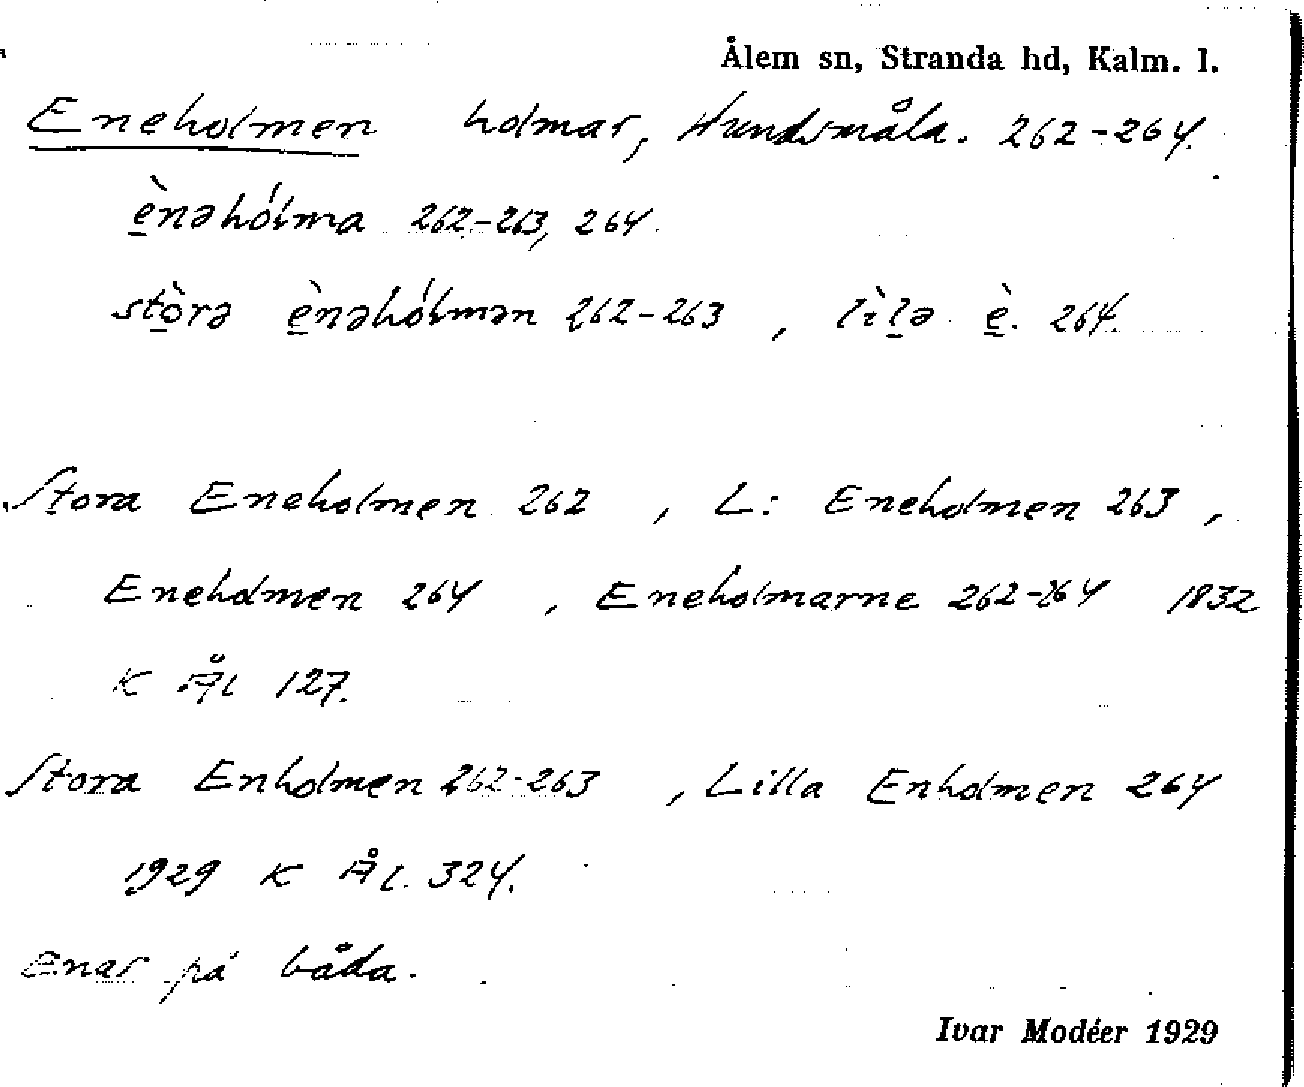 Ålem sn, Stranda hd, Kalm. l.
Eneholmen holmar, Hundsmåla. 262-264.
ènəhólma 262-263, 264.
stòrə ènəhólmən 262-263, lìlə è. 264.
Stora Eneholmen 262, L: Eneholmen 263,
Eneholmen 264, Eneholmarne 262-264 1832
K ÅL 127.
Stora Enholmen 262-263, Lilla Enholmen 264
1929 K ÅL. 324.
enar på båda.
Ivar Modéer 1929